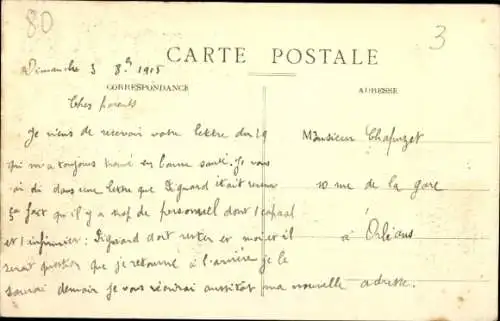 80
3
Dimanche 3 8bre 1915
CARTE POSTALE
CORRESPONDANCE
ADRESSE
Chers parents
Je viens de recevoir votre lettre du 29
qui m'a toujours trouvé en bonne santé. Je vous
ai di dans une lettre que Diguard était venu
ça fait qu'il y a de personnel dont 1 capaal
et 1 infirmier : Diguard doit rester et moi et il
serait question que je retourne à l'arrière je le
saurai demain je vous écrirai aussitôt ma nouvelle adresse.
Monsieur Chapuzet
10 rue de la gare
à Orléans